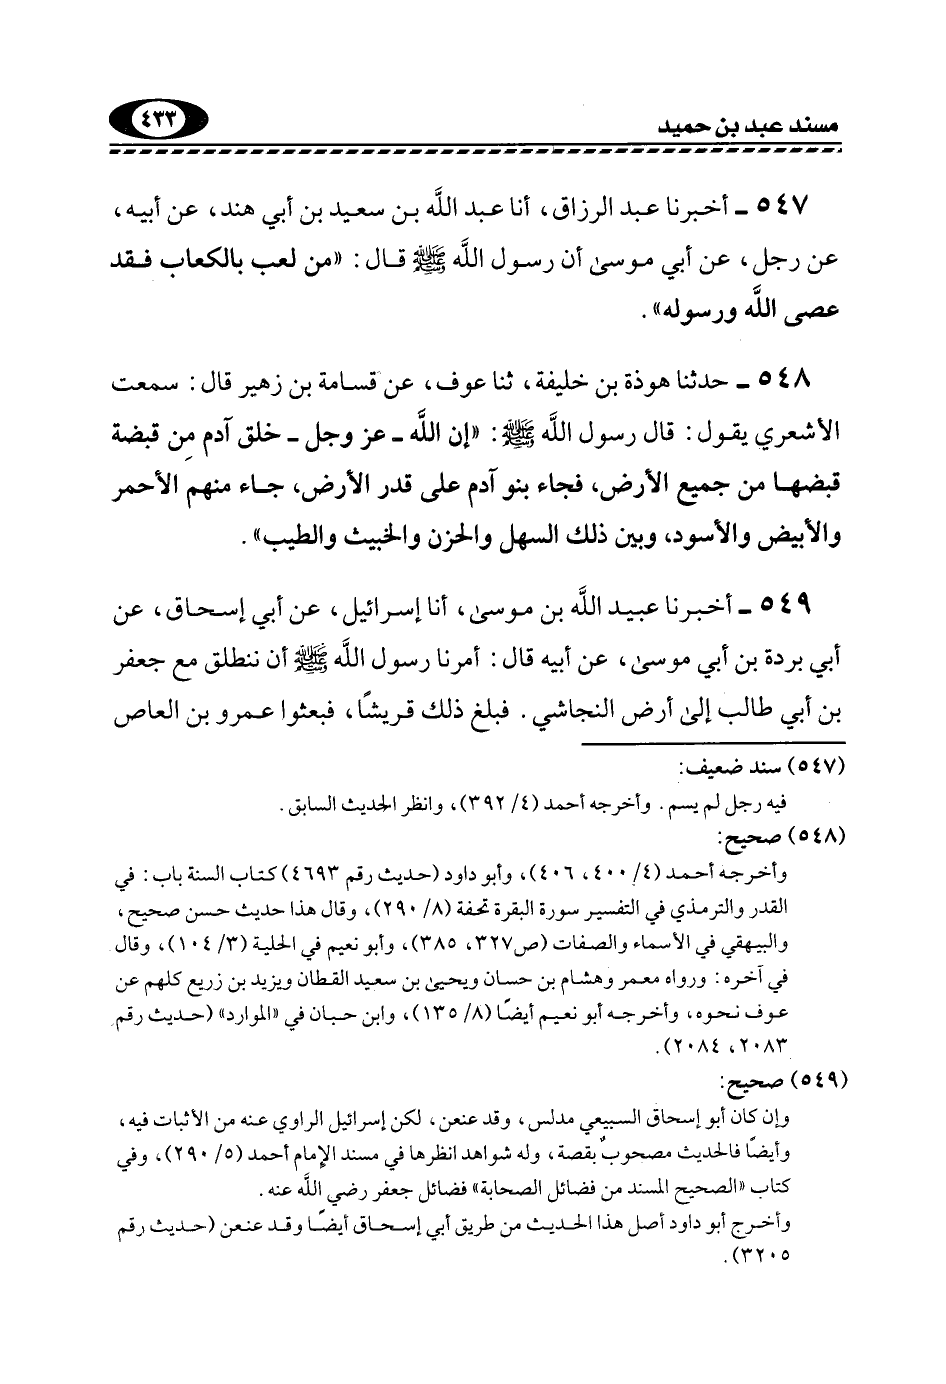 مسند عبد بن حميد
٤٣٣
٥٤٧ ـ أخبرنا عبد الرزاق، أنا عبد اللَّه بن سعيد بن أبي هند، عن أبيه،
عن رجل، عن أبي موسىٰ أن رسول اللَّه ﷺ قال: «من لعب بالكعاب فقد
عصى اللَّه ورسوله».
٥٤٨ ـ حدثنا هوذة بن خليفة، ثنا عوف، عن قسامة بن زهير قال: سمعت
الأشعري يقول: قال رسول اللَّه ﷺ: «إن اللَّه ـ عز وجل ـ خلق آدم مِن قبضة
قبضها من جميع الأرض، فجاء بنو آدم على قدر الأرض، جاء منهم الأحمر
والأبيض والأسود، وبين ذلك السهل والحزن والخبيث والطيب».
٥٤٩ ـ أخبرنا عبيد اللَّه بن موسىٰ، أنا إسرائيل، عن أبي إسحاق، عن
أبي بردة بن أبي موسىٰ، عن أبيه قال: أمرنا رسول اللَّه ﷺ أن ننطلق مع جعفر
بن أبي طالب إلىٰ أرض النجاشي. فبلغ ذلك قريشًا، فبعثوا عمرو بن العاص
(٥٤٧) سند ضعيف:
فيه رجل لم يسم. وأخرجه أحمد (٤/ ٣٩٢)، وانظر الحديث السابق.
(٥٤٨) صحيح:
وأخرجه أحمد (٤/ ٤٠٠، ٤٠٦)، وأبو داود (حديث رقم ٤٦٩٣) كتاب السنة باب: في
القدر والترمذي في التفسير سورة البقرة تحفة (٨/ ٢٩٠)، وقال هذا حديث حسن صحيح،
والبيهقي في الأسماء والصفات (ص٣٢٧، ٣٨٥)، وأبو نعيم في الحلية (٣/ ١٠٤)، وقال
في آخره: ورواه معمر وهشام بن حسان ويحيىٰ بن سعيد القطان ويزيد بن زريع كلهم عن
عوف نحوه، وأخرجه أبو نعيم أيضًا (٨/ ١٣٥)، وابن حبان في «الموارد» (حديث رقم
٢٠٨٣، ٢٠٨٤).
(٥٤٩) صحيح:
وإن كان أبو إسحاق السبيعي مدلس، وقد عنعن، لكن إسرائيل الراوي عنه من الأثبات فيه،
وأيضًا فالحديث مصحوبٌ بقصة، وله شواهد انظرها في مسند الإمام أحمد (٥/ ٢٩٠)، وفي
كتاب «الصحيح المسند من فضائل الصحابة» فضائل جعفر رضي اللَّه عنه.
وأخرج أبو داود أصل هذا الحديث من طريق أبي إسحاق أيضًا وقد عنعن (حديث رقم
٣٢٠٥).